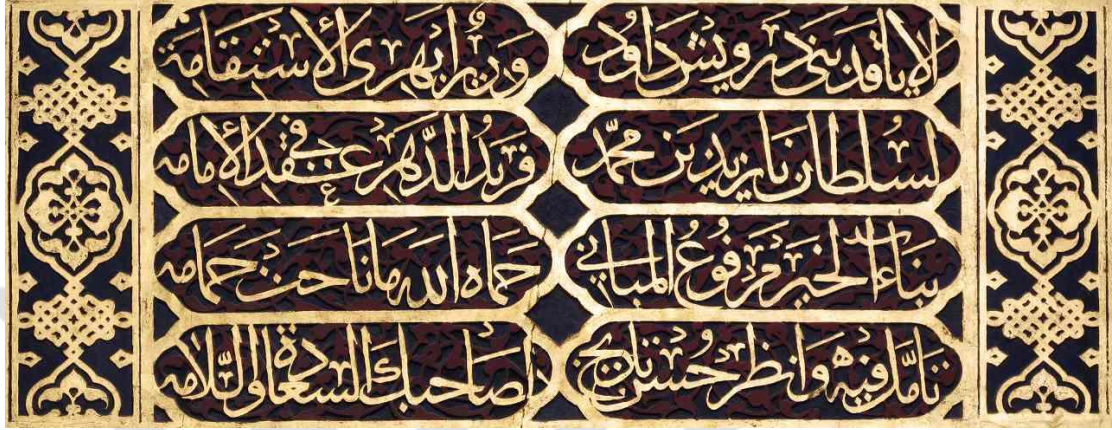 الا ياقد بنى درويش داود وزير ابهرى الاستقامة
لسلطان بايزيد بن محمد فريد الدهر في عقد الإمامه
بناء الخير مرفوع المباني حماه الله ما ناحت حمامه
تأمل فيه وانظر حسن تاريخ لصاحبك السعادة والسلامه